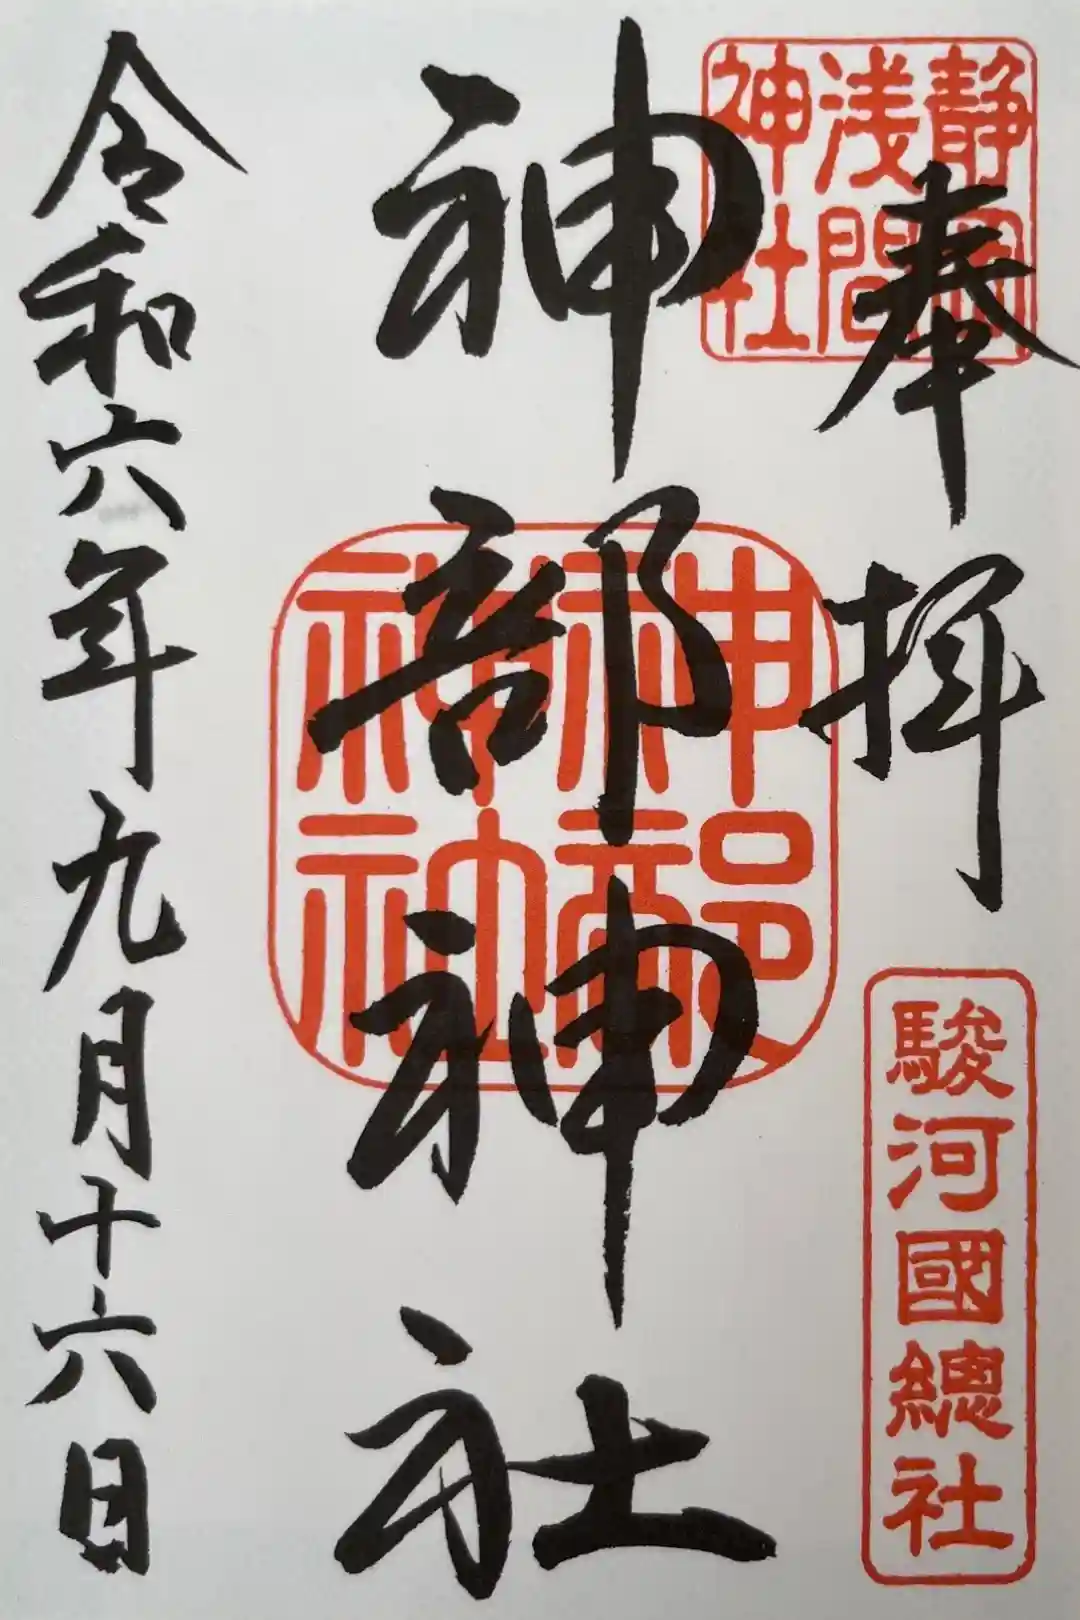 奉拝
静岡
浅間
神社
駿河國總社
神部神社
神部
神社
令和六年九月十六日